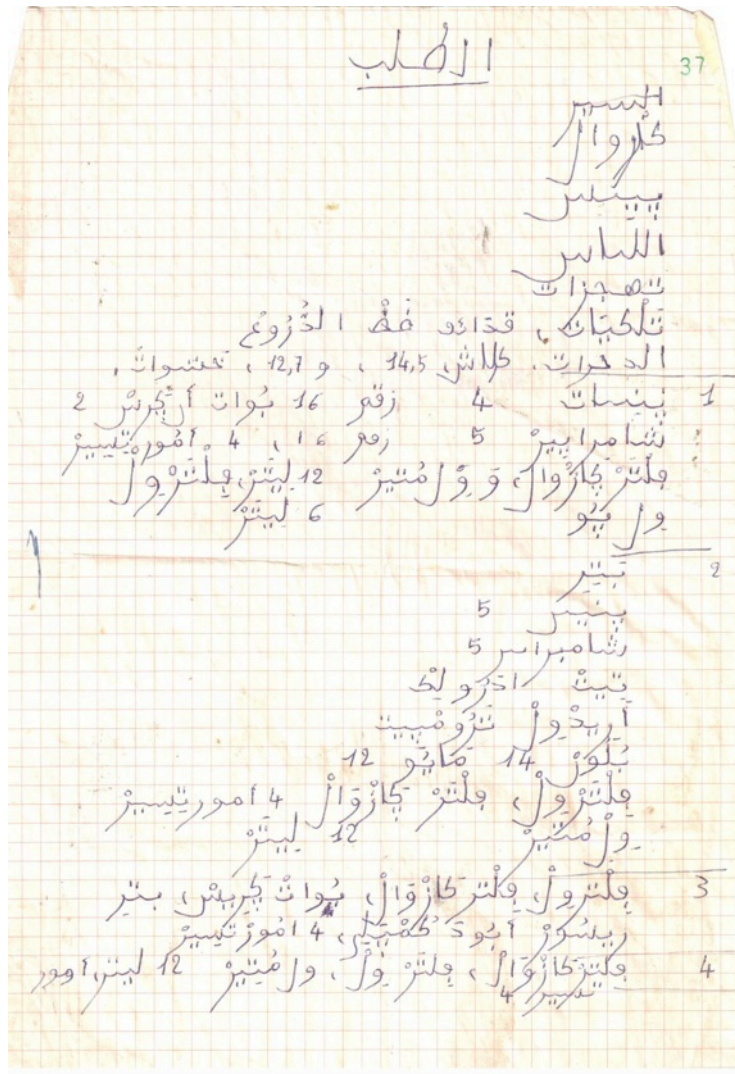 الطلب
37
السير
كزوال
بينس
اللباس
تهجزات
تلكيات، قذائف ضظ الدُّرُوع
الدخرات، كلاش، 14,5، و 12,7، تحسوات،
1 بنسات 4 زقم 16 بُوات أركرس 2
شامبرايير 5 زقم 16، 4 أمورتيسير
فلتر كازوال، و ول مُتير 12 ليتر، فلترول
ول بو 6 ليتر
2 بيتر
بنيس 5
شامبراير 5
تيت ادرولك
أريدول ترومبيت
بلور 14 مايو 12
فلترول، فلتر كازوال 4 أمورتيسير
ول مُتير 12 ليتر
3 فلترول، فلتر كازوال، بوات كريس، بتير
ريسور أبود كمبلي، 4 امورتيسير
4 فلتر كازوال، فلتر ول، ول متير 12 ليتر، أمور
تسير 4